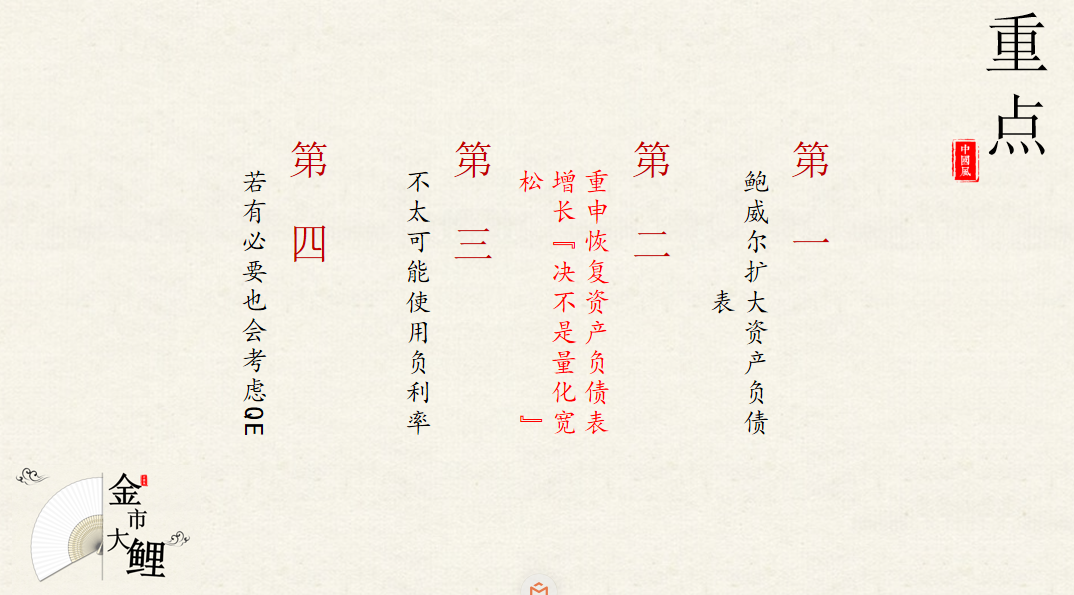 重点
中國風
第一
鲍威尔扩大资产负债
表
第二
重申恢复资产负债表
增长『决不是量化宽
松』
第三
不太可能使用负利率
第四
若有必要也会考虑QE
金市大鲤